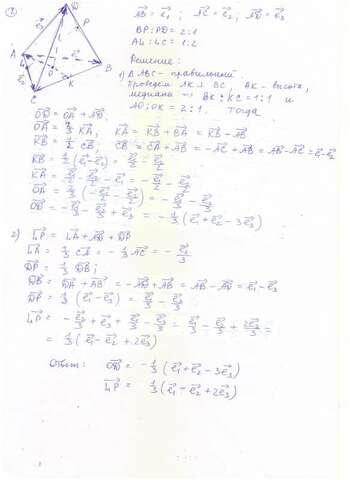 ①
D
P
L
A
B
O
K
C
AB = e₁ ; AC = e₂ ; AD = e₃
BP : PD = 2:1
AL : LC = 1:2
Решение:
1) △ABC - правильный
Проведем AK ⊥ BC, AK - высота,
медиана → BK : KC = 1:1 и
AO : OK = 2:1. Тогда
OD = OA + AD;
OA = 2/3 KA; KA = KB + BA = KB - AB
KB = 1/2 CB; CB = CA + AB = -AC + AB = AB - AC = e₁ - e₂
KB = 1/2 (e₁ - e₂) = e₁/2 - e₂/2
KA = e₁/2 - e₂/2 - e₁ = -e₁/2 - e₂/2
OA = 2/3 (-e₁/2 - e₂/2) = -e₁/3 - e₂/3
OD = -e₁/3 - e₂/3 + e₃ = -1/3 (e₁ + e₂ - 3e₃)
2) LP = LA + AD + DP
LA = 1/3 CA = -1/3 AC = -e₂/3
DP = 1/3 DB;
DB = DA + AB = -AD + AB = AB - AD = e₁ - e₃
DP = 1/3 (e₁ - e₃) = e₁/3 - e₃/3
LP = -e₂/3 + e₃ + e₁/3 - e₃/3 = e₁/3 - e₂/3 + 2e₃/3 =
= 1/3 (e₁ - e₂ + 2e₃)
Ответ: OD = -1/3 (e₁ + e₂ - 3e₃)
LP = 1/3 (e₁ - e₂ + 2e₃)